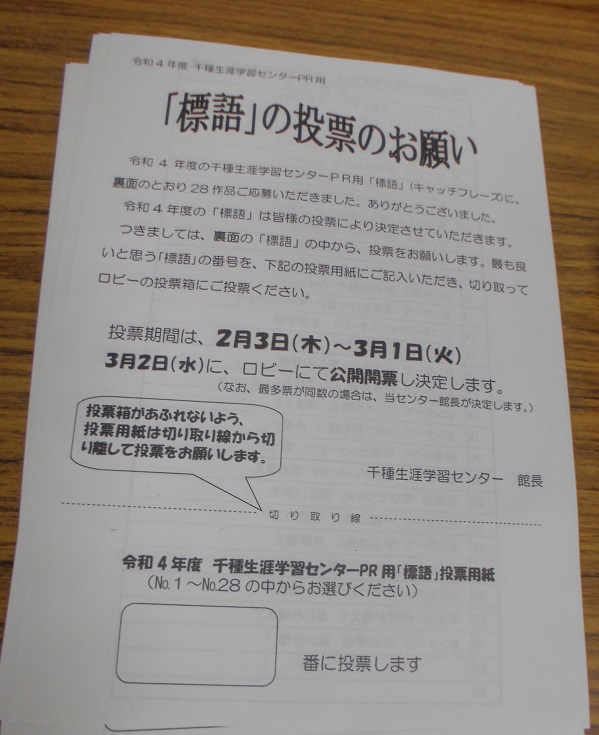 令和４年度 千種生涯学習センターPR用
「標語」の投票のお願い
令和 ４ 年度の千種生涯学習センターＰＲ用「標語」(キャッチフレーズ)に、
裏面のとおり 28 作品ご応募いただきました。ありがとうございました。
令和４年度の「標語」は皆様の投票により決定させていただきます。
つきましては、裏面の「標語」の中から、投票をお願いします。最も良
いと思う「標語」の番号を、下記の投票用紙にご記入いただき、切り取って
ロビーの投票箱にご投票ください。
投票期間は、2月3日(木)～3月1日(火)
3月2日(水)に、ロビーにて公開開票し決定します。
（なお、最多票が同数の場合は、当センター館長が決定します。）
投票箱があふれないよう、
投票用紙は切り取り線から切
り離して投票をお願いします。
千種生涯学習センター　館長
切 り 取 り 線
令和４年度　千種生涯学習センターPR 用「標語」投票用紙
（№１～№28 の中からお選びください）
番に投票します